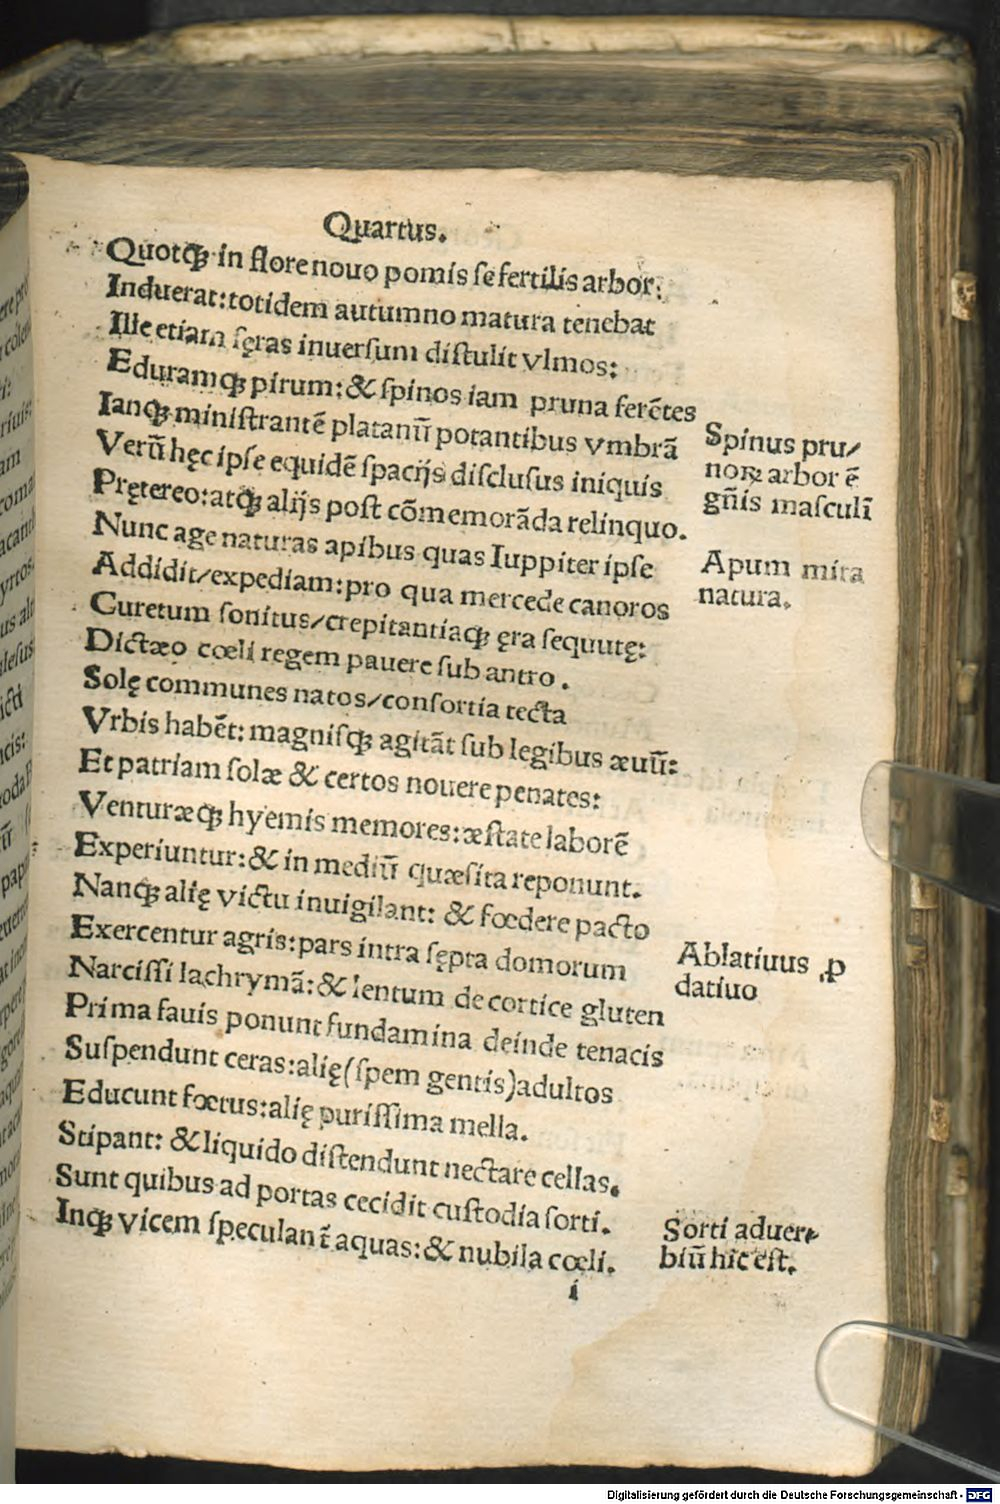 Quartus.
Quotqꝫ in flore nouo pomis ſe fertilis arbor:
Induerat: totidem autumno matura tenebat
Ille etiam ſęras inuerſum diſtulit vlmos:
Eduramqꝫ pirum: & ſpinos iam pruna ferētes
Ianqꝫ miniſtrantē platanū potantibus vmbrā
Verū hęc ipſe equidē ſpacijs diſcluſus iniquis
Prętereo: atqꝫ alijs poſt cōmemorāda relinquo.
Nunc age naturas apibus quas Iuppiter ipſe
Addidit/expediam: pro qua mercede canoros
Curetum ſonitus/crepitantiaqꝫ ęra ſequutę:
Dictæo cœli regem pauere ſub antro.
Solę communes natos/conſortia tecta
Vrbis habēt: magniſqꝫ agitāt ſub legibus æuū:
Et patriam ſolæ & certos nouere penates:
Venturæqꝫ hyemis memores: æſtate laborē
Experiuntur: & in mediū quæſita reponunt.
Nanqꝫ alię victu inuigilant: & fœdere pacto
Exercentur agris: pars intra ſępta domorum
Narciſſi lachrymā: & lentum de cortice gluten
Prima fauis ponunt fundamina deinde tenacis
Suſpendunt ceras: alię (ſpem gentis) adultos
Educunt fœtus: alię puriſſima mella.
Stipant: & liquido diſtendunt nectare cellas.
Sunt quibus ad portas cecidit cuſtodia ſorti.
Inqꝫ vicem ſpeculant̄ aquas: & nubila cœli.
i
Spinus pru/
noꝝ arbor ē
gn̄is maſculī
Apum mira
natura.
Ablatiuus ꝓ
datiuo
Sorti aduer
biū hic eſt.
Digitalisierung gefördert durch die Deutsche Forschungsgemeinschaft - DFG